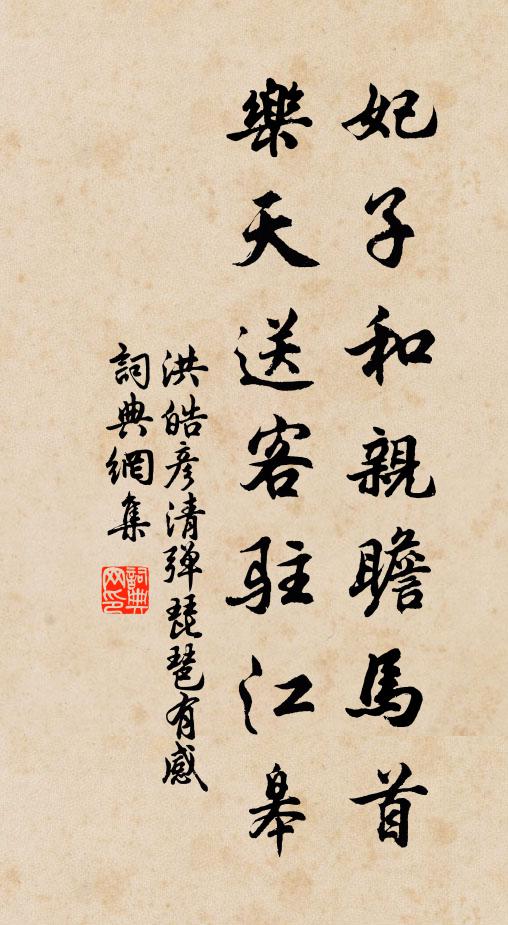 妃子和親瞻馬首
樂天送客駐江皋
洪皓彦清弹琵琶有感
詞典網集
詞典网印